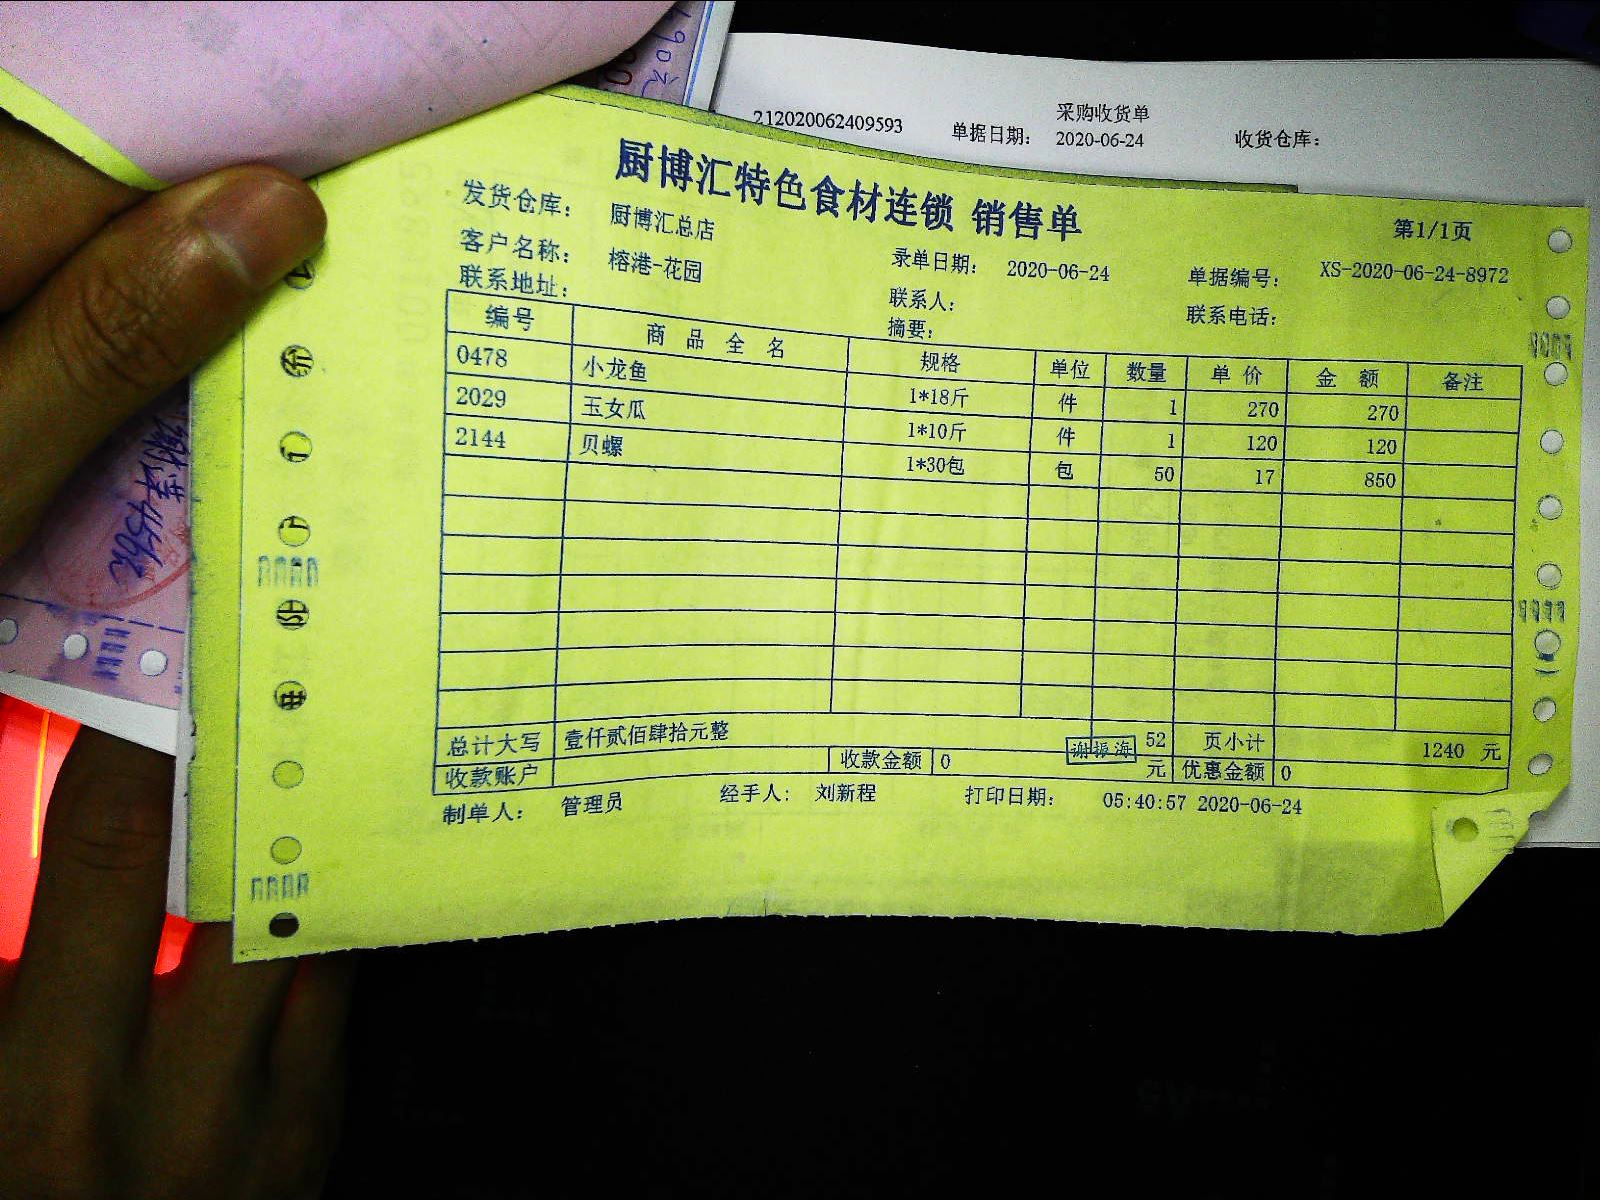 采购收货单
212020062409593 单据日期: 2020-06-24 收货仓库:
厨博汇特色食材连锁 销售单
第1/1页
发货仓库: 厨博汇总店
客户名称: 榕港-花园 录单日期: 2020-06-24 单据编号: XS-2020-06-24-8972
联系地址: 联系人: 联系电话:
摘要:
编号 商品全名 规格 单位 数量 单价 金额 备注
0478 小龙鱼 1*18斤 件 1 270 270
2029 玉女瓜 1*10斤 件 1 120 120
2144 贝螺 1*30包 包 50 17 850
总计大写 壹仟贰佰肆拾元整 52 页小计 1240 元
谢振海
收款账户 收款金额 0 元 优惠金额 0
制单人: 管理员 经手人: 刘新程 打印日期: 05:40:57 2020-06-24